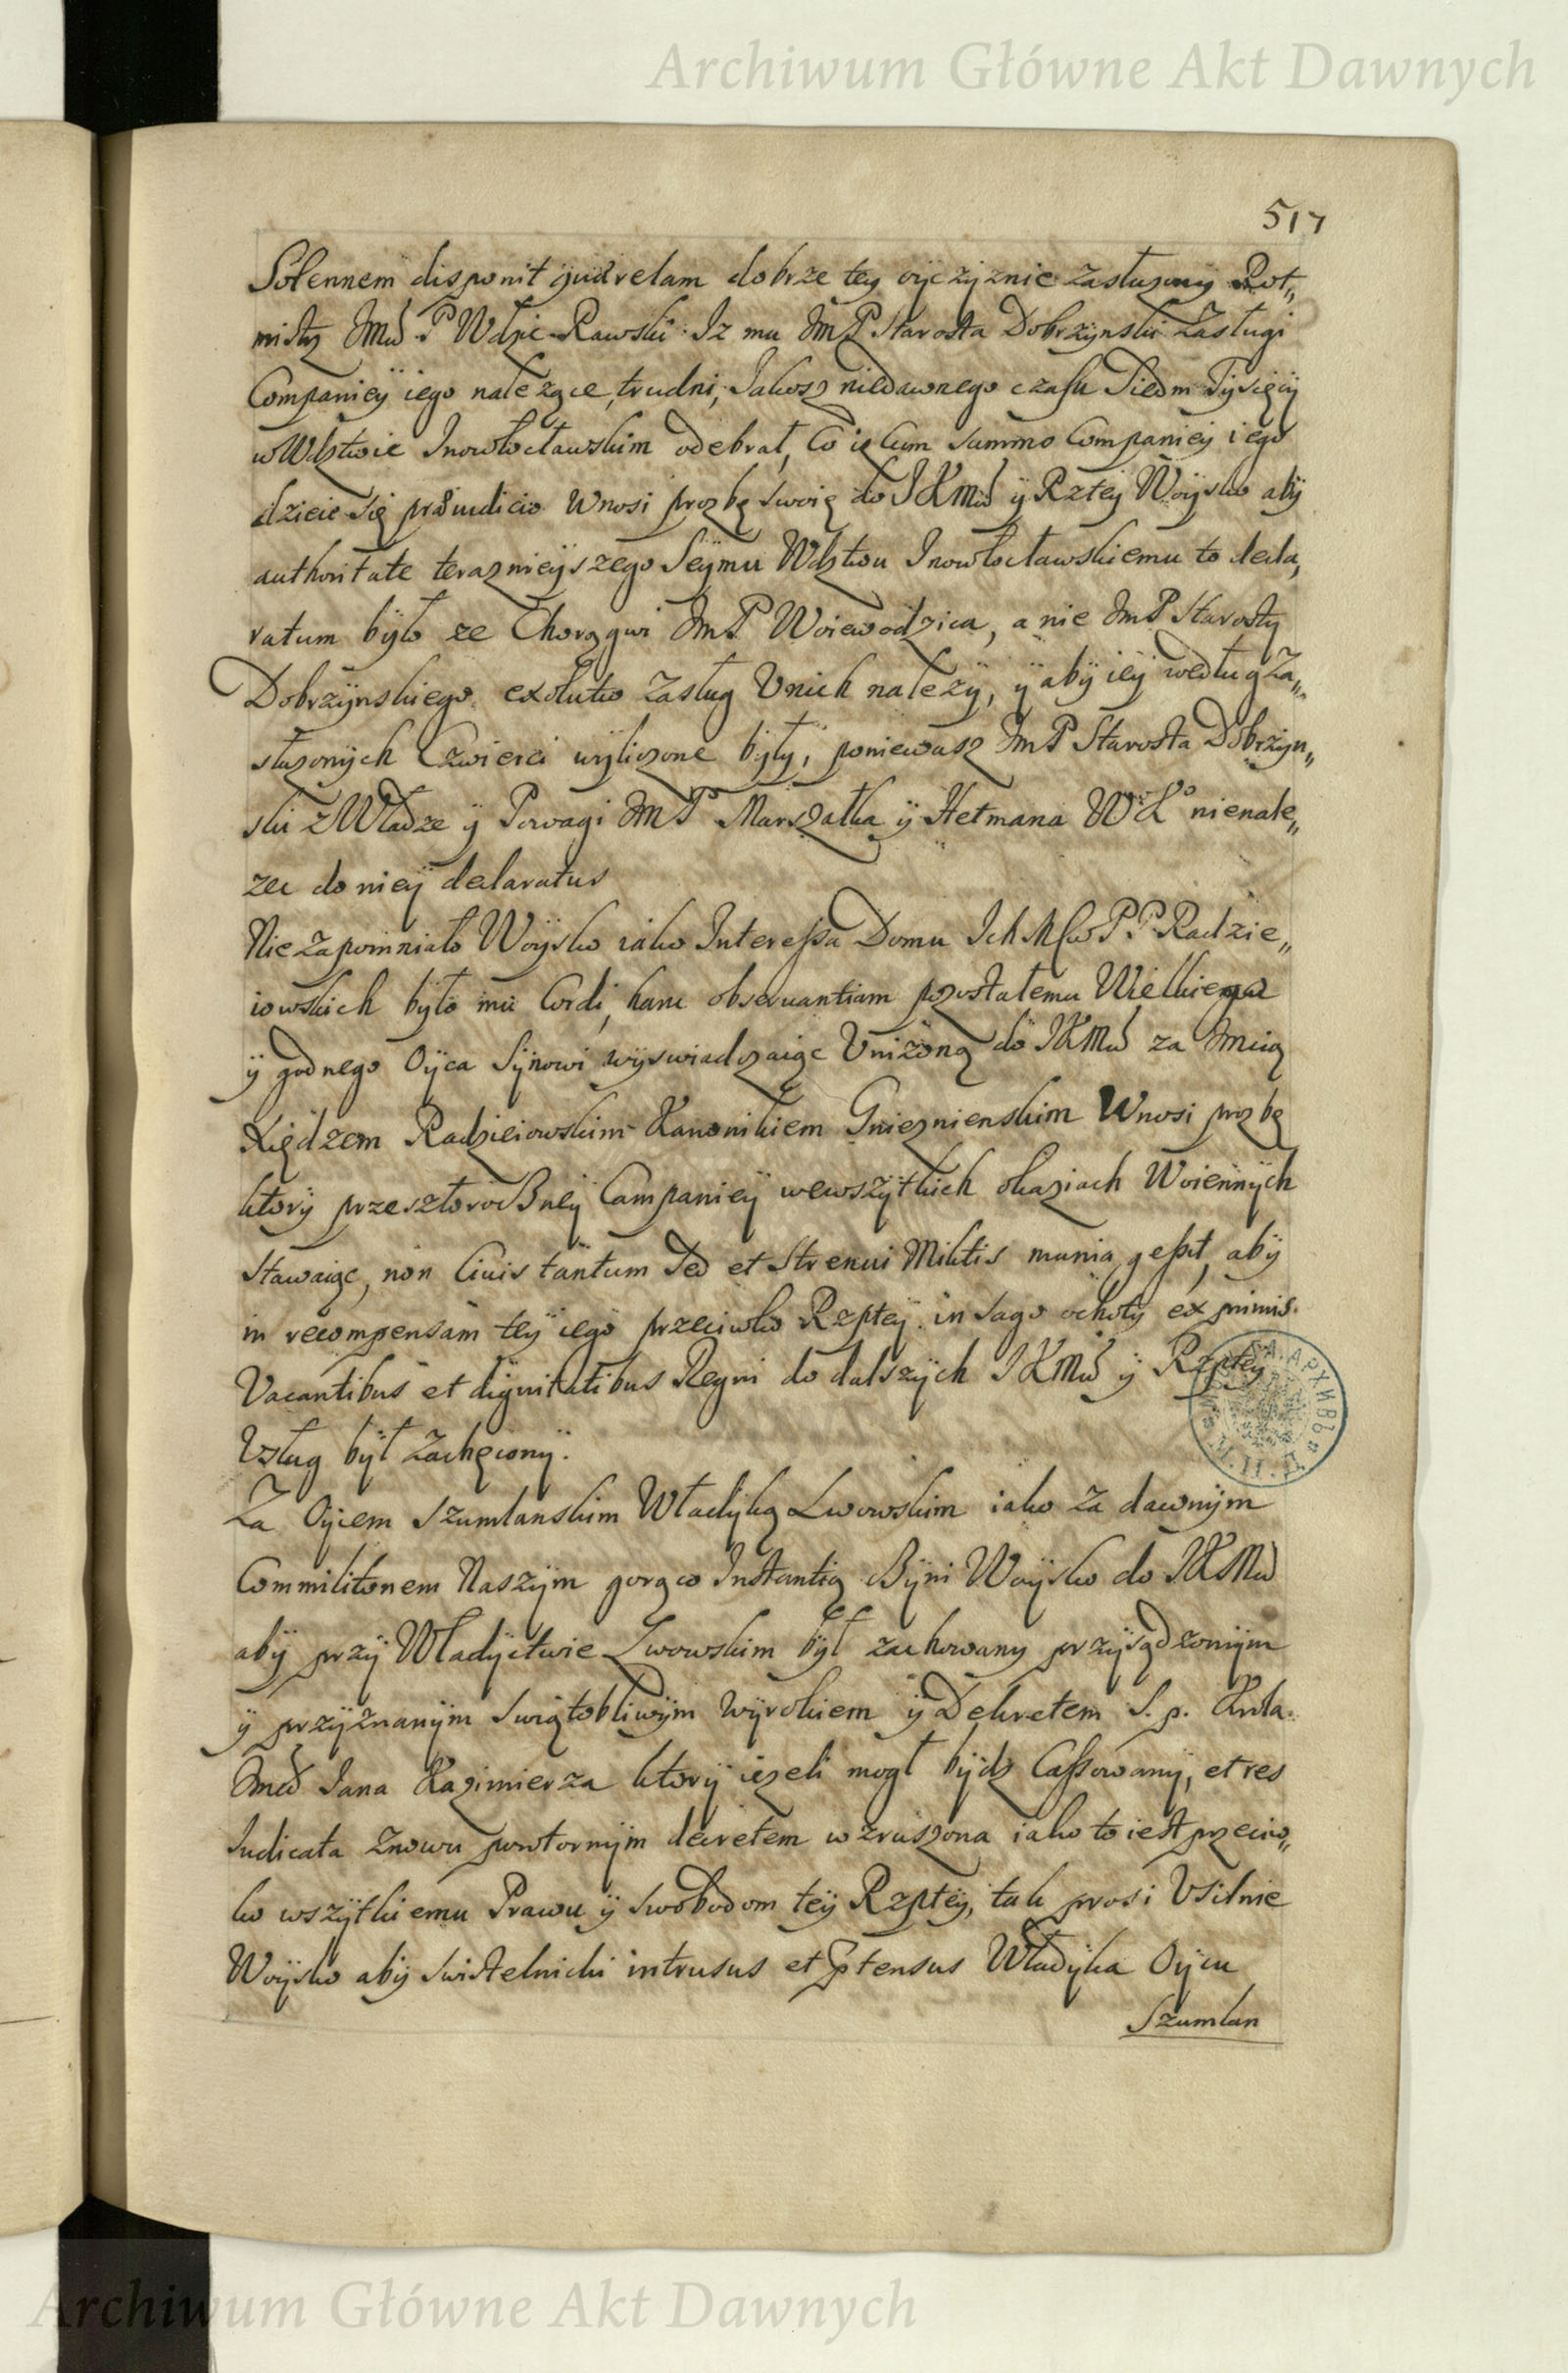 Archiwum Główne Akt Dawnych
517
Solennem disponit quærelam dobrze tey oyczyznie zasłuzony Rot„
mistrz Jmć P Wdzic Rawski. Iz mu JmP Starosta Dobrzynski Zasługi
Companiey iego nalezące, trudni, Jakosz niedawnego czasu Siedm Tysięcy
w Wdztwie Inowłocławskim odebrał, Co iz cum summo Companiey iego
dzieie się præiudicio Wnosi prozbę swoię do JKMći y Rztey Woysko aby
authoritate teraznieyszego Seymu Wdztwu Inowłocławskiemu to decla„
ratum było ze Chorągwi JmP Woiewodzica, a nie JmP Starosty
Dobrzynskiego exolutio Zasług Unich nalezy, y aby iey według Za„
słuzonych Czwierci wyliczone były, poniewasz JmP Starosta Dobrzyn„
ski z Władze y Powagi JmP Marszałka y Hetmana WKo nienale„
zec do niey declaratus
Nie zapomniało Woysko iako Interessa Domu Ich Mсw P.P. Radzie„
iowskich było mu Cordi, hanc obseruantiam pozostałemu Wielkiego
y godnego Oyca Synowi wyswiadczaiąc Unizoną do JKMći za Jmcią
Xiędzem Radzieiowskim Kanonikiem Gnieznienskim Wnosi prozbę
ktory przeszłoroczney Campaniey wewszytkich okaziach Woiennych
Stawaiąc, non Ciuis tantum Sed et Strenui Militis munia gessit, aby
in recompensam tey iego przeciwko Rzptey in sago ochoty ex primis
Vacantibus et dignitatibus Regni do dalszych JKMći y Rzptey
Usług był Zachęcony.
Za Oycem Szumlanskim Władyką Lwowskim iako za dawnym
Commilitonem Naszym gorąco Instantią Czyni Woysko do JKMći
aby przy Władyctwie Lwowskim był zachowany przysądzonym
y przyznanym Swiątobliwym Wyrokiem y Dekretem S. p. Krola
Jmći Jana Kazimierza ktory iezeli mogł bydz Cassowany, et res
Iudicata Znowu powtornym decretem wzruszona iako to iest przeciw„
ko wszytkiemu Prawu y Swobodom tey Rzptey, tak prosi Usilnie
Woysko aby Swistelnicki intrusus et prætensus Władyka Oycu
Szumlan
Archiwum Główne Akt Dawnych